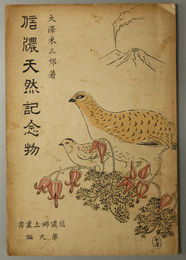 矢澤米三郎著
信濃天然記念物
信濃郷土叢書
第九編